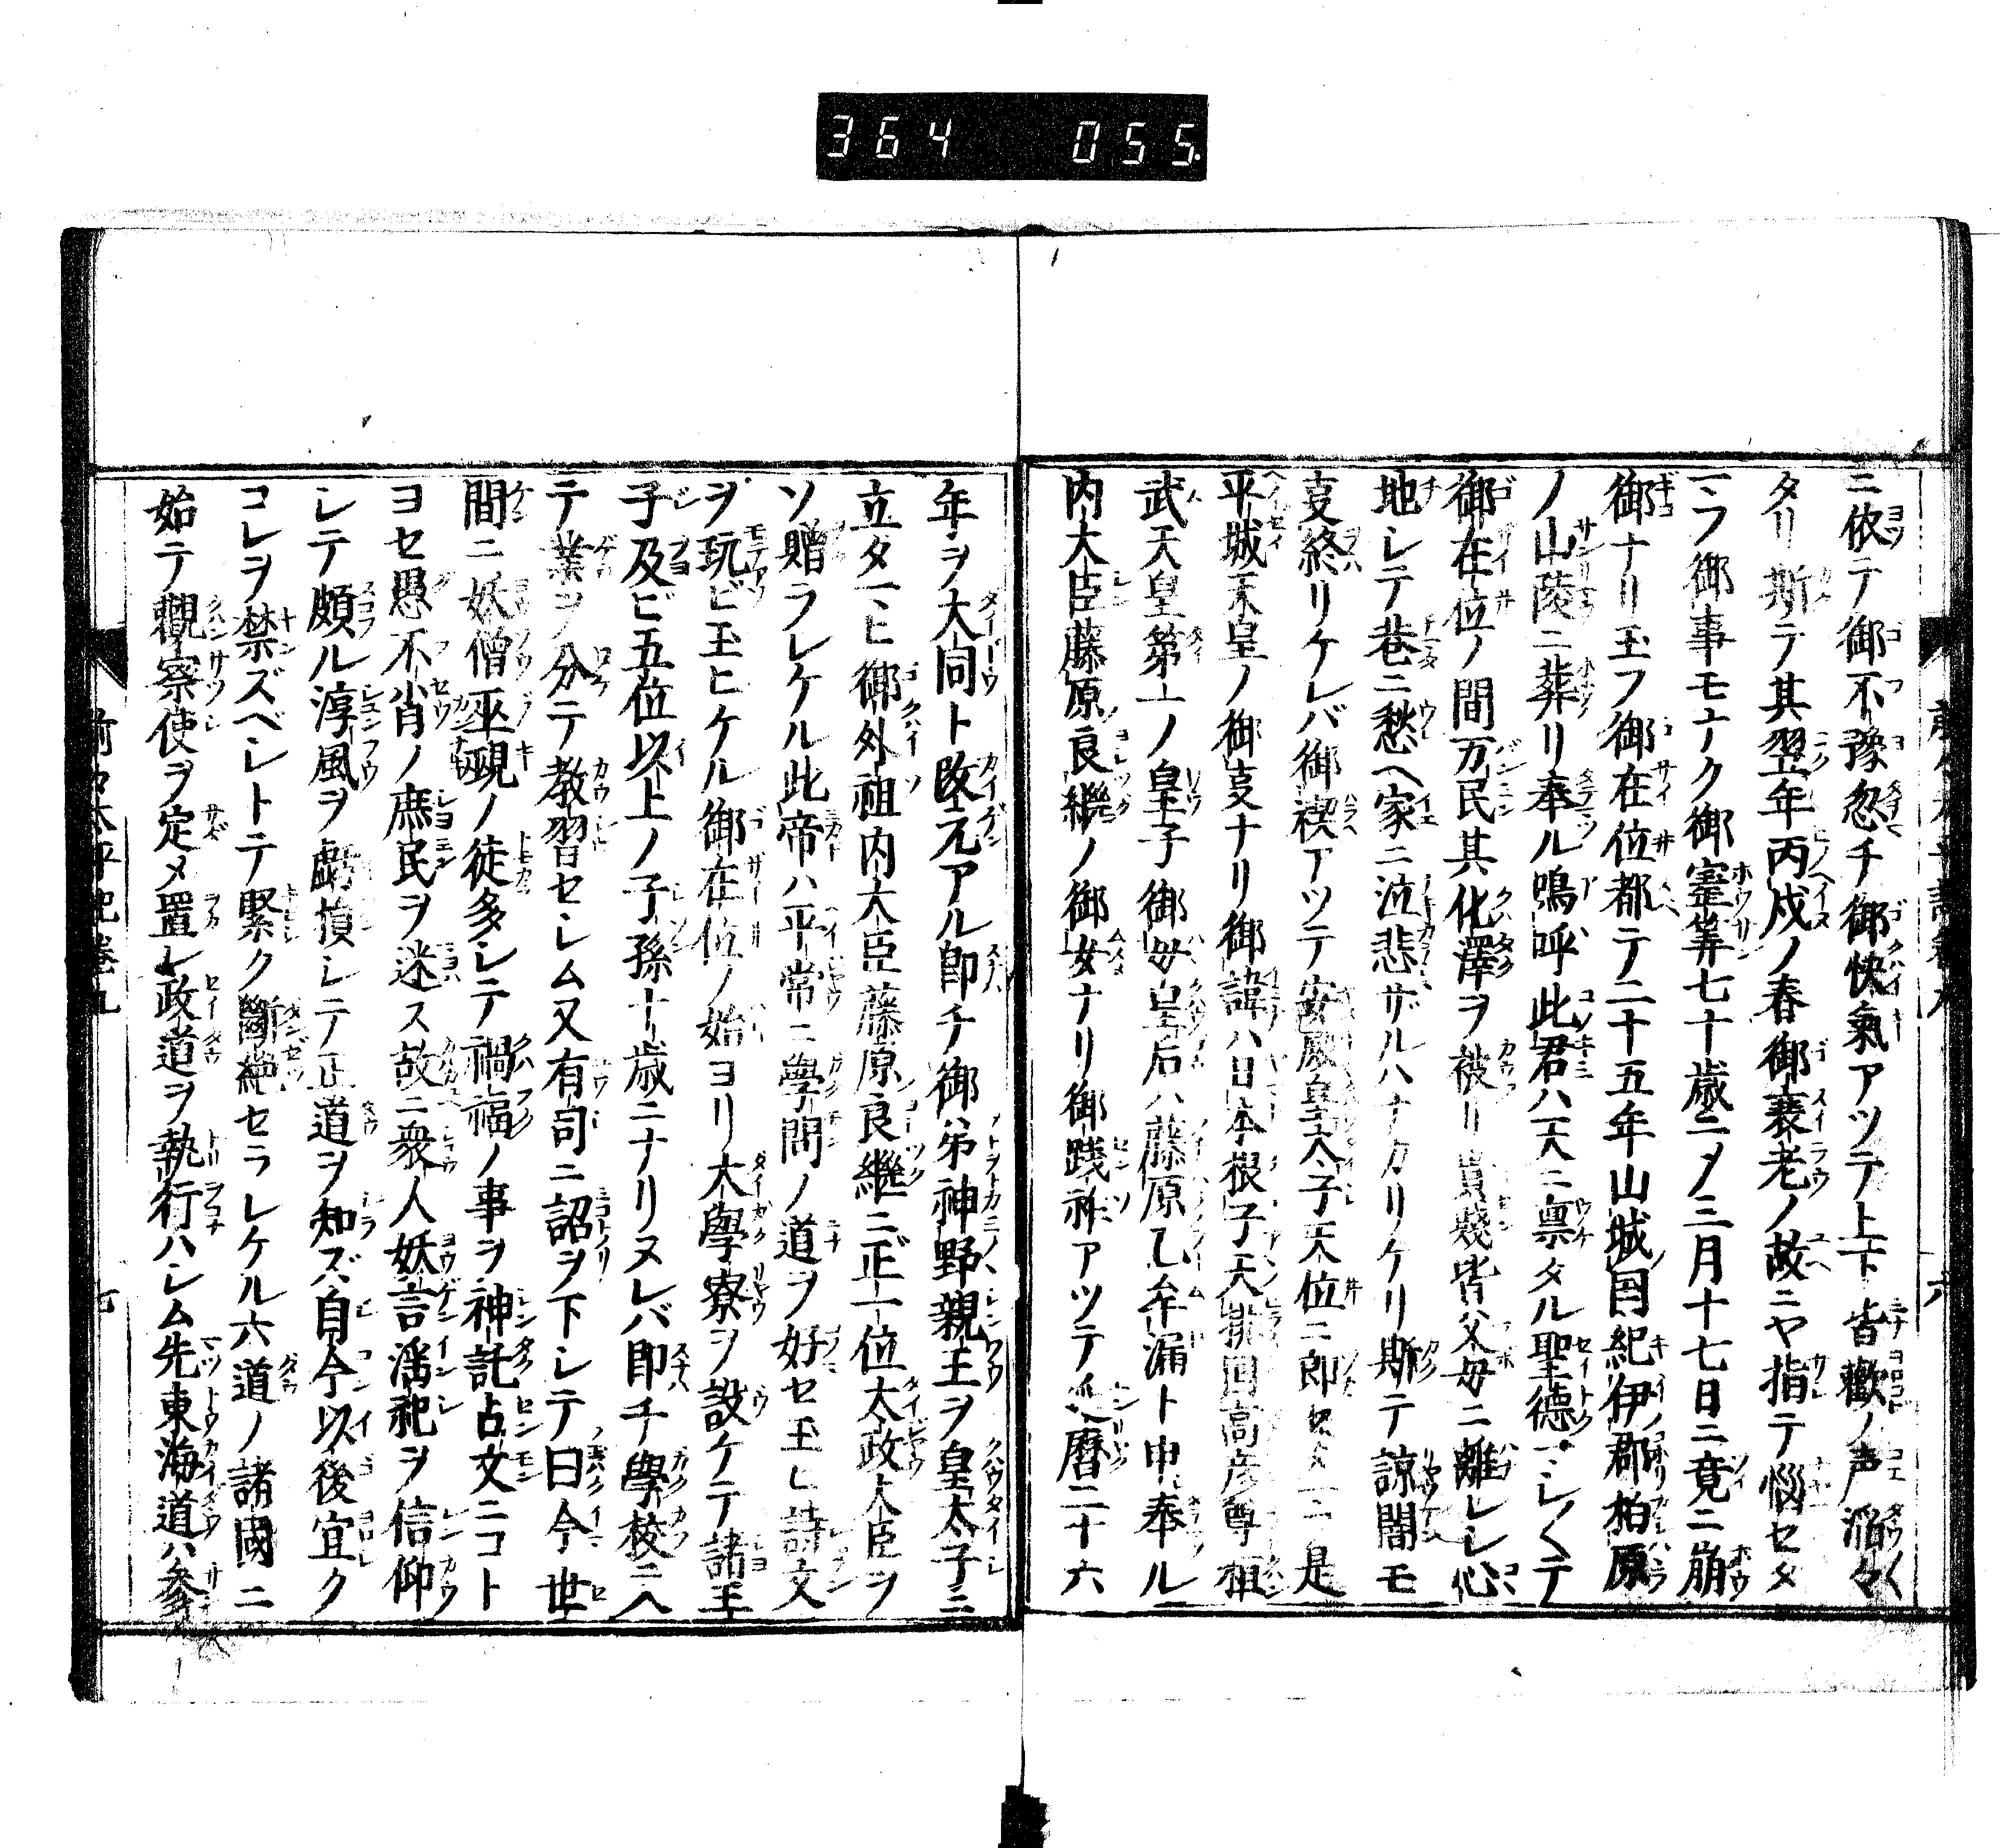 364 055
ニ依テ御不豫忽チ御快氣アツテ上下皆歡ノ声滔々
タリ斯テ其翌年丙戍ノ春御衰老ノ故ニヤ指テ惱セタ
マフ御事モナク御寳筭七十歳ニノ三月十七日ニ竟ニ崩
御ナリ玉フ御在位都テ二十五年山城国紀伊郡柏原
ノ山陵ニ葬リ奉ル嗚呼此君ハ天ニ禀タル聖德マシ〱テ
御在位ノ間万民其化澤ヲ被リ貴賤皆父毎ニ離レシ心
地シテ巷ニ愁ヘ家ニ泣悲ザルハナカリケリ斯テ諒闇モ
支終リケレバ御禊アツテ安殿皇太子天位ニ即セタマフ是
平城天皇ノ御支ナリ御諱ハ日本根子天推国高彦尊桓
武天皇第一ノ皇子御母皇后ハ藤原乙牟漏ト申奉ル
内大臣藤原良継ノ御女ナリ御踐祚アツテ延暦二十六
年ヲ大同ト改元アル即チ御弟神野親王ヲ皇太子ニ
立タマヒ御外祖内大臣藤原良継ニ正一位太政大臣ヲ
ソ贈ラレケル此帝ハ平常ニ學問ノ道ヲ好セ玉ヒ詩文
ヲ玩ビ玉ヒケル御在位ノ始ヨリ大學寮ヲ設ケテ諸王
子及ビ五位以上ノ子孫十歳ニナリヌレバ即チ學校ニ入
テ業ヲ分テ教習セシム又有司ニ詔ヲ下シテ曰今世
間ニ妖僧巫覡ノ徒多シテ禍福ノ事ヲ神託占文ニコト
ヨセ愚不肖ノ庶民ヲ迷ス故ニ衆人妖言淫祀ヲ信仰
シテ頗ル淳風ヲ虧損シテ正道ヲ知ズ自今以後宜ク
コレヲ禁ズベシトテ緊ク斷絶セラレケル六道ノ諸國ニ
始テ觀察使ヲ定メ置レ政道ヲ執行ハシム先東海道ハ參
前太平記巻九
七